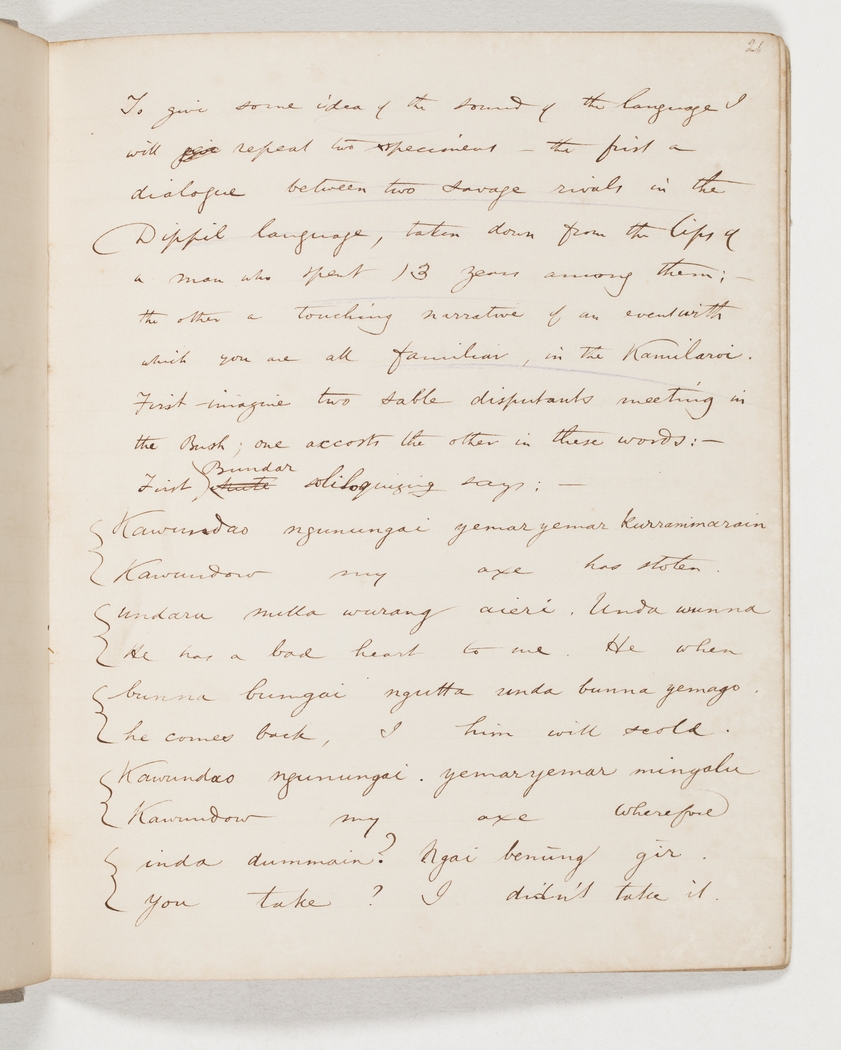 26
To give some idea of the sound of the language I
will repeat two specimens – the first a
dialogue between two savage rivals in the
Dippil language, taken down from the lips of
a man who spent 13 years among them; –
the other a touching narrative of an event with
which you are all familiar, in the Kamilaroi.
First imagine two sable disputants meeting in
the Bush; one accosts the other in these words: –
Bundar
First soliloquizing says: –
Kawundao ngunungai yemaryemar kurranimarain
Kawundow my axe has stolen.
undaru nulla wurang aieri. Unda wunna
He has a bad heart to me. He when
bunna bumgai ngutta unda bunna yemago.
he comes back, I him will scold.
Kawundao ngunungai. yemaryemar minyalu
Kawundow my axe wherefore
inda dummain? Ngai benūng gīr.
you take? I didn't take it.